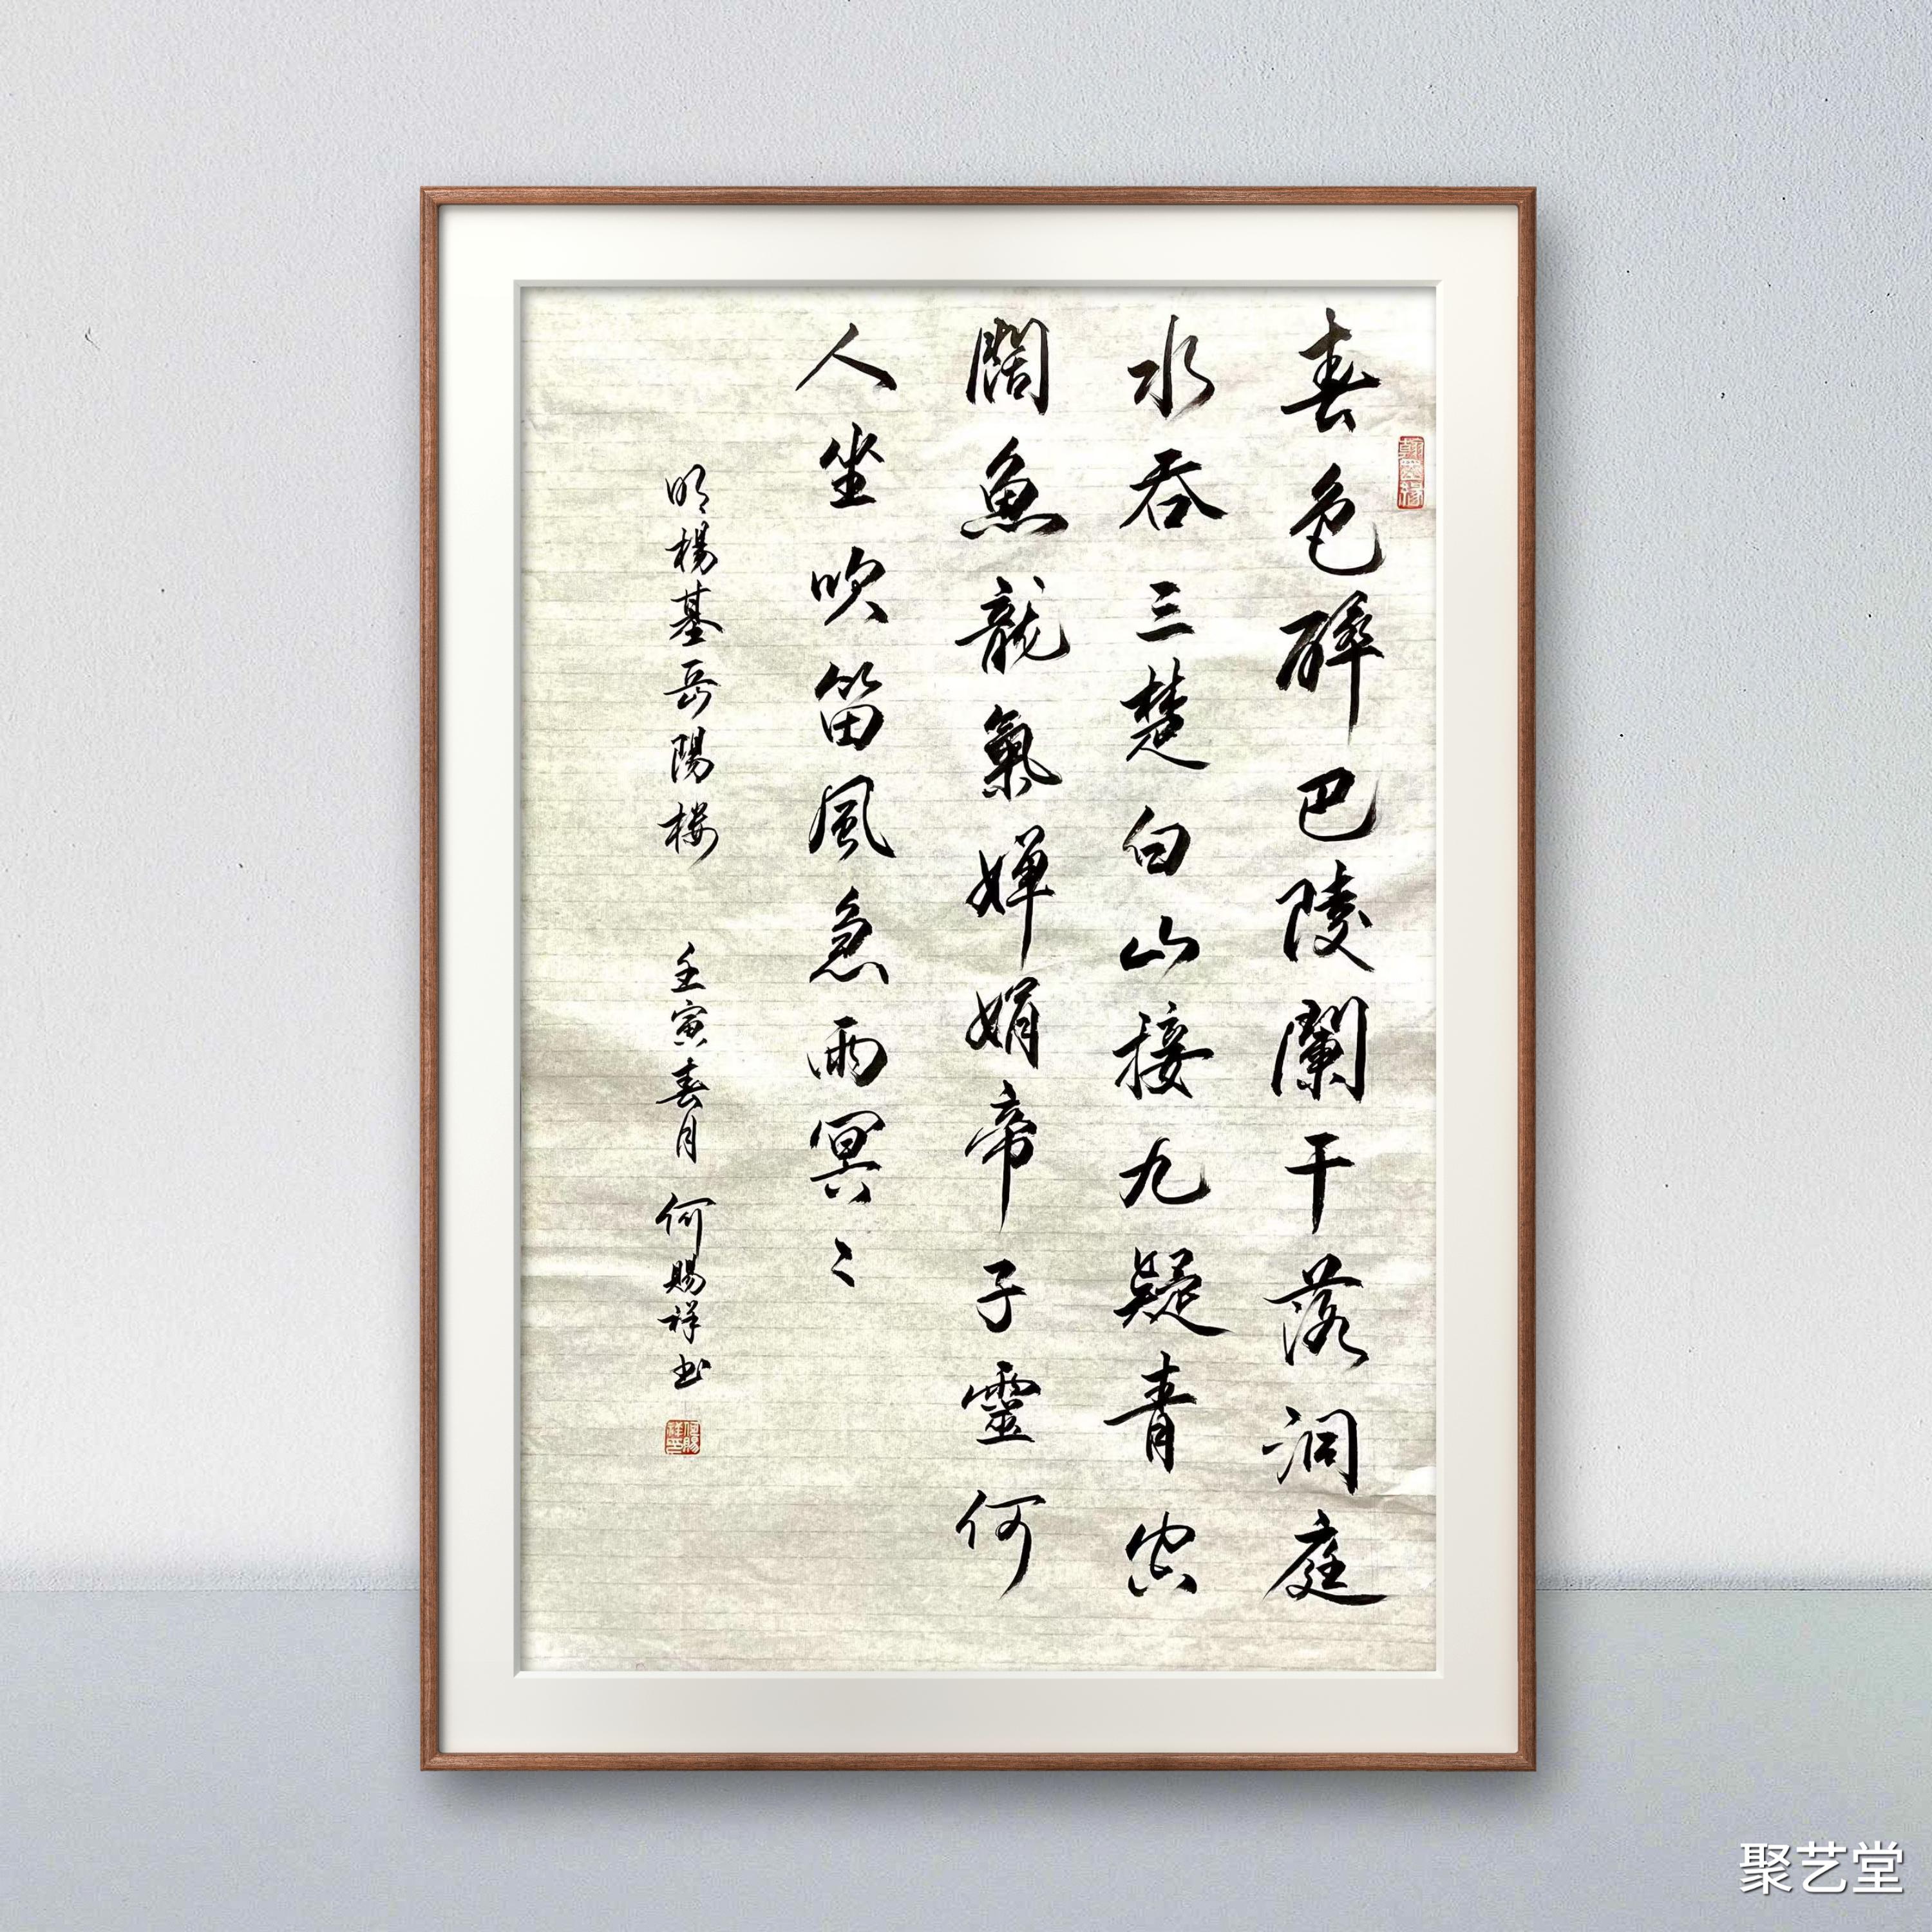 春色醉巴陵闌干落洞庭
水吞三楚白山接九疑青空
闊魚龍氣嬋娟帝子靈何
人坐吹笛風急雨冥〻
明楊基岳陽楼 壬寅春月 何賜祥书
翰墨缘
何賜祥印
聚艺堂